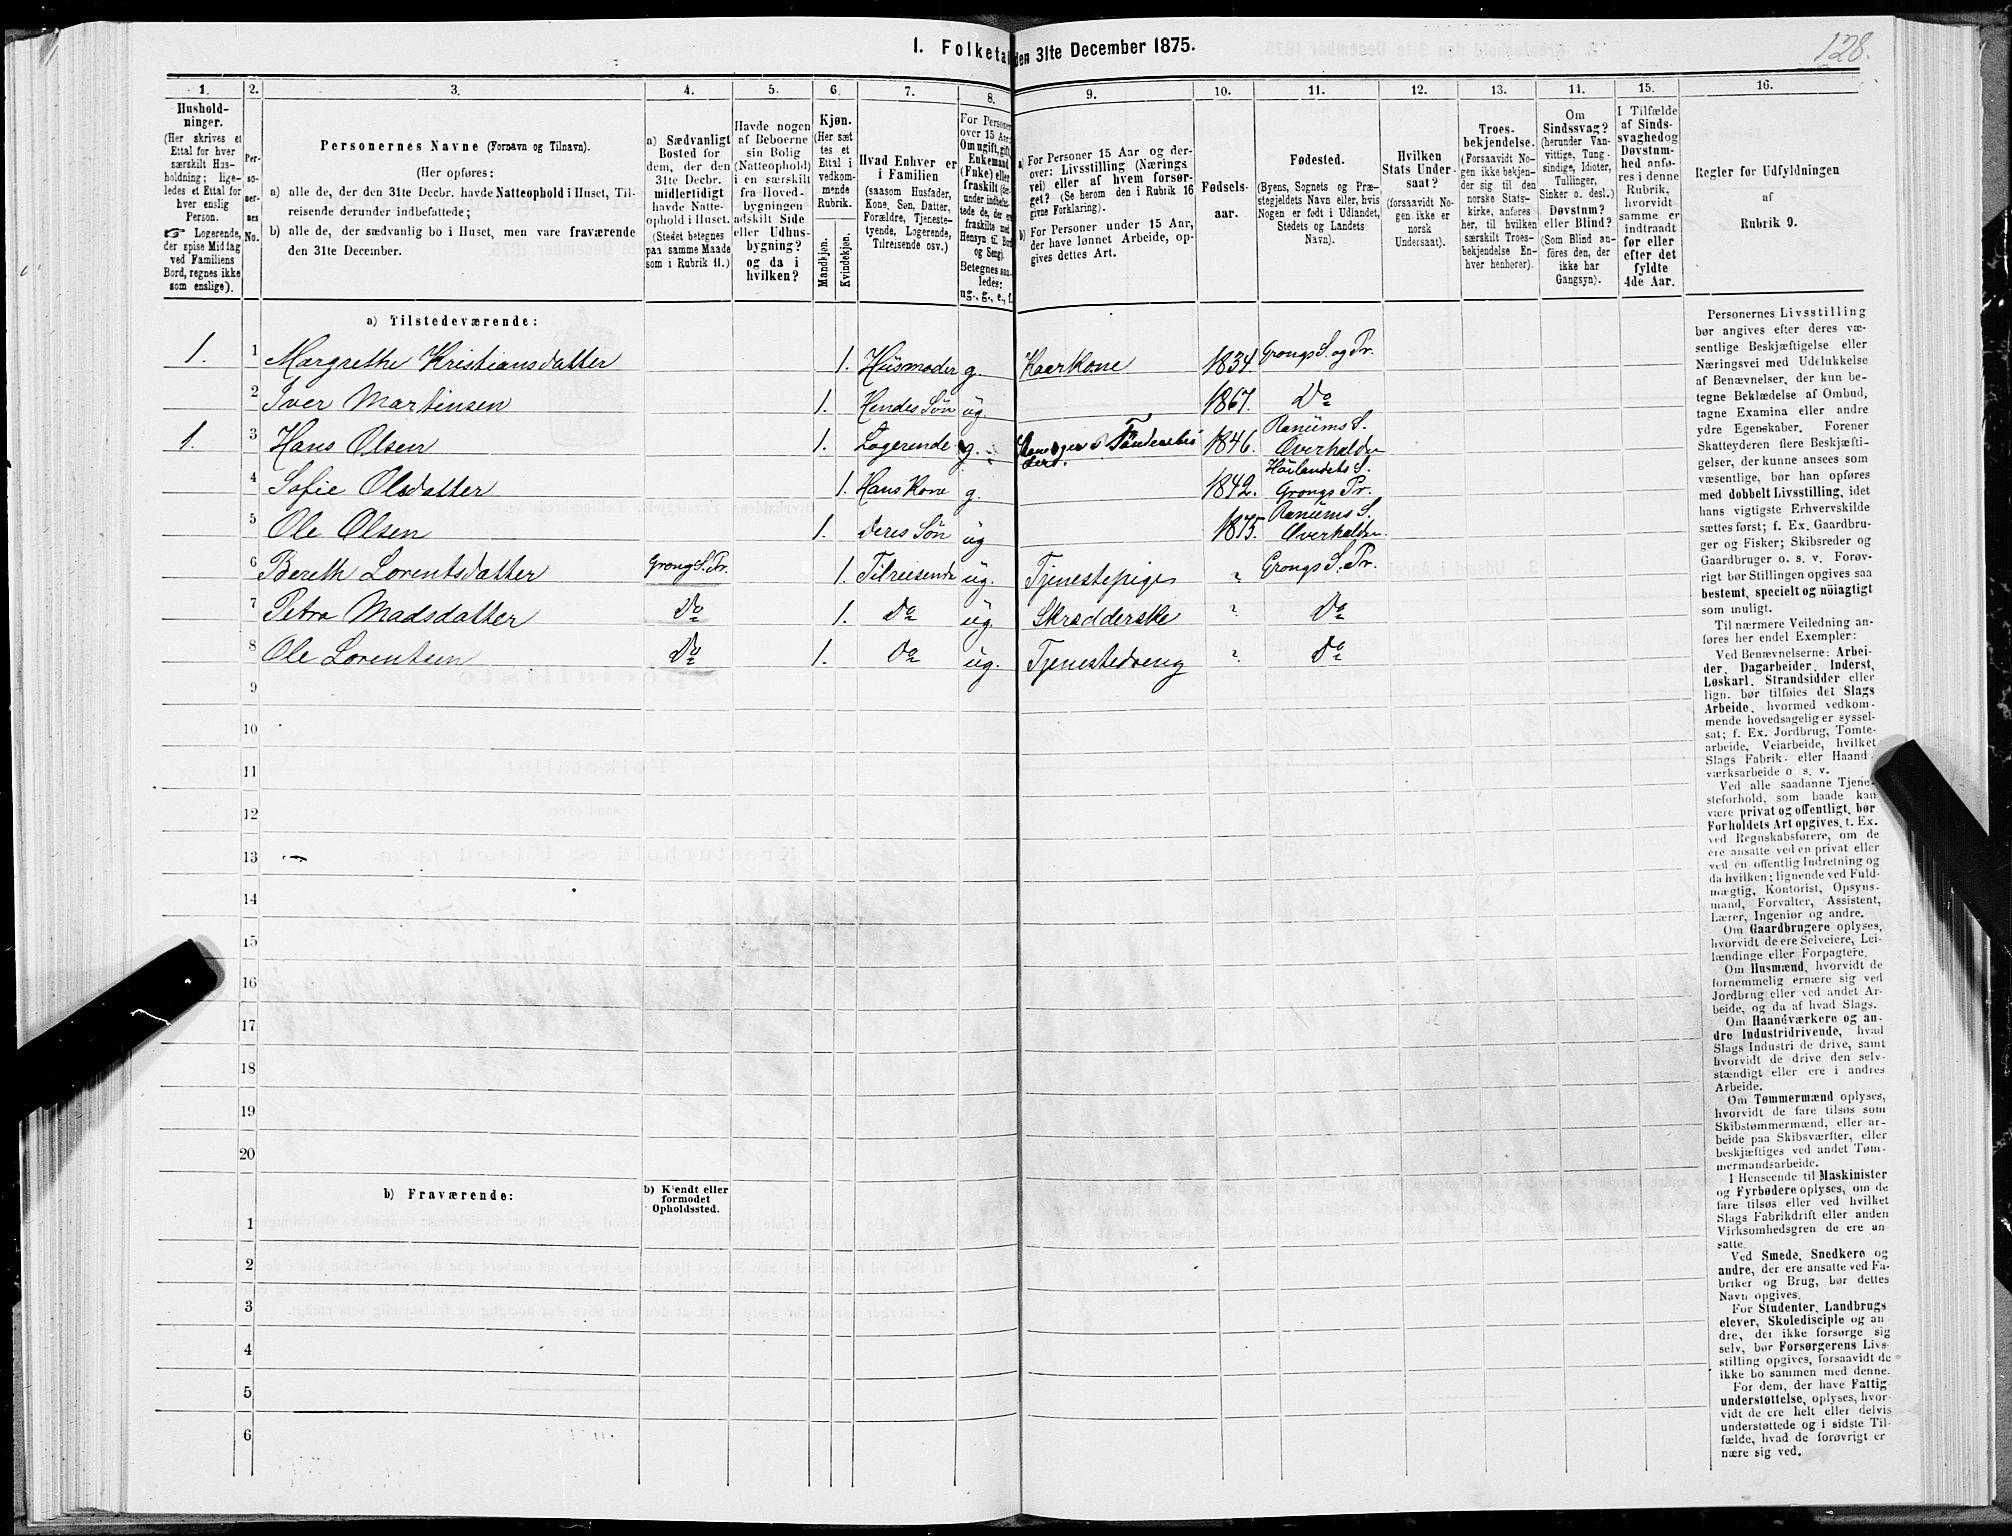 I. Folketal den 31te December 1875.
128.
1. 2. 3. 4. 5. 6. 7. 8. 9. 10. 11. 12. 13. 14. 15. 16.
Hushold-
ninger.
(Her skrives et
Ettal for hver
særskilt Hus-
holdning; lige-
ledes et Ettal for
hver enslig
Person.
☞ Logerende,
der spise Middag
ved Familiens
Bord, regnes ikke
som enslige).
Per-
so-
ner-
nes
No.
Personernes Navne (Fornavn og Tilnavn).
(Her opføres:
a) alle de, der den 31te Decbr. havde Natteophold i Huset, Til-
reisende derunder indbefattede;
b) alle de, der sædvanlig bo i Huset, men vare fraværende
den 31te December.
a) Sædvanligt
Bosted for
dem, der den
31te Decbr.
midlertidigt
havde Natte-
ophold i Huset.
(Stedet betegnes
paa samme Maade
som i Rubrik 11.)
Havde nogen
af Beboerne
sin Bolig
(Natteophold)
i en særskilt
fra Hoved-
bygningen
adskilt Side
eller Udhus-
bygning?
og da i
hvilken?
Kjøn.
(Her sæt
tes et
Ettal i
vedkom-
mende
Rubrik.
Mandkjøn.
Kvindekjøn.
Hvad Enhver er
i Familien
(saasom Husfader,
Kone, Søn, Datter,
Forældre, Tjeneste-
tyende, Logerende,
Tilreisende osv.)
For Personer
over 15 Aar:
Om ugift, gift,
Enkemand
(Enke) eller
fraskilt (der-
under indbefat-
tede de, der er
fraskilte med
Hensyn til Bord
og Seng).
Betegnes saa-
ledes:
ug., g., e., f.
a) For Personer 15 Aar og der-
over: Livsstilling (Nærings
vei) eller af hvem forsør-
get? (Se herom den i Rubrik 16
givne Forklaring).
b) For Personer under 15 Aar,
der have lønnet Arbeide, op-
gives dettes Art.
Fødsels-
aar.
Fødested.
(Byens, Sognets og Præ-
stegjeldets Navn eller, hvis
Nogen er født i Udlandet,
Stedets og Landets
Navn).
Hvilken
Stats Under-
saat?
(forsaavidt No-
gen ikke er
norsk
Undersaat).
Troes-
bekjendelse.
(Forsaavidt No-
gen ikke bekjen-
der sig til den
norske Stats-
kirke, anføres
her, til hvilken
særskilt Troes-
bekjendelse En-
hver henhører).
Om
Sindssvag?
(herunder Van-
vittige, Tung-
sindige, Idioter,
Tullinger,
Sinker o. desl.)
Døvstum?
eller Blind?
(Som Blind an-
føres den, der
ikke har
Gangsyn).
I Tilfælde
af Sinds-
svaghed og
Døvstum-
hed anfø-
res i denne
Rubrik,
hvorvidt
samme er
indtraadt
før eller
efter det
fyldte
4de Aar.
Regler for Udfyldningen
af
Rubrik 9.
a) Tilstedeværende:
1. 1 Margrethe Kristiansdatter 1. Husmoder g. Kaarkone 1834. Grongs S. og Pr.
2 Iver Martinsen 1. Hendes Søn ug. 1867. Do
1. 3 Hans Olsen 1. Logerende g. 1846. Ranums S.
Overhalden
4 Sofie Olsdatter 1. Hans Kone g. 1842. Hørlandets S.
Grongs Pr.
5 Ole Olsen 1. Deres Søn ug 1875. Ranums S.
Overhalden.
6 Bereth Lorentsdatter Grong S. Pr. 1. Tilreisende ug. Tjenestepige ? Grongs S. Pr.
7 Petra Madsdatter Do 1. Do ug. Skrædderske ? Do
8 Ole Lorentsen Do 1. Do ug. Tjenestedreng ? Do
9
10
11
12
13
14
15
16
17
18
19
20
b) Fraværende:
b) Kjendt eller
formodet
Opholdssted.
1
2
3
4
5
6
Personernes Livsstilling
bør angives efter deres væ-
sentlige Beskjæftigelse eller
Næringsvei med Udelukkelse
af Benævnelser, der kun be-
tegne Beklædelse af Ombud,
tagne Examina eller andre
ydre Egenskaber. Forener
Skatteyderen flere Beskjæfti-
gelser, der kunne ansees som
væsentlige, bør han opføres
med dobbelt Livsstilling, idet
hans vigtigste Erhvervskilde
sættes først; f. Ex. Gaardbru-
ger og Fisker; Skibsreder og
Gaardbruger o. s. v. Forøv-
rigt bør Stillingen opgives saa
bestemt, specielt og nøiagtigt
som muligt.
Til nærmere Veiledning an-
føres her endel Exempler:
Ved Benævnelserne: Arbei-
der, Dagarbeider, Inderst,
Løskarl, Strandsidder eller
lign. bør tilføies det Slags
Arbeide, hvormed vedkom-
mende hovedsagelig er syssel-
sat; f. Ex. Jordbrug, Tomte-
arbeide, Veiarbeide, hvilket
Slags Fabrik- eller Haand-
værksarbeide o. s. v.
Ved alle saadanne Tjene-
steforhold, som baade kan
være privat og offentligt, bør
Forholdets Art opgives, t. Ex.
ved Regnskabsførere, om de
ere ansatte ved en privat eller
ved en offentlig Indretning og
da hvilken; lignende ved Fuld-
mægtig, Kontorist, Opsyns-
mand, Forvalter, Assistent,
Lærer, Ingeniør og andre.
Om Gaardbrugere oplyses,
hvorvidt de ere Selveiere, Lei-
lændinge eller Forpagtere.
Om Husmænd, hvorvidt de
fornemmelig ernære sig ved
Jordbrug eller ved andet Ar-
beide, og da af hvad Slags.
Om Haandværkere og an-
dre Industridrivende, hvad
Slags Industri de drive, samt
hvorvidt de drive den selv-
stændigt eller ere i andres
Arbeide.
Om Tømmermænd oplyses,
hvorvidt de fare tilsøs som
Skibstømmermænd, eller ar-
beide paa Skibsværfter, eller
beskjæftiges ved andet Tøm-
mermandsarbeide.
I Henseende til Maskinister
og Fyrbødere oplyses, om de
fare tilsøs eller ved hvilket
Slags Fabrikdrift eller anden
Virksomhedsgren de ere an-
satte.
Ved Smede, Snedkere og
andre, der ere ansatte ved Fa-
briker og Brug, bør dettes
Navn opgives.
For Studenter, Landbrugs
elever, Skoledisciple og an-
dre, der ikke forsørge sig
selv, bør Forsørgerens Livs-
stilling opgives, forsaavidt de
ikke bo sammen med denne.
For dem, der have Fattig
understøttelse, oplyses, hvor-
vidt de ere helt eller delvis
understøttede og i sidste Til-
fælde, hvad de forøvrigt er
nære sig ved.